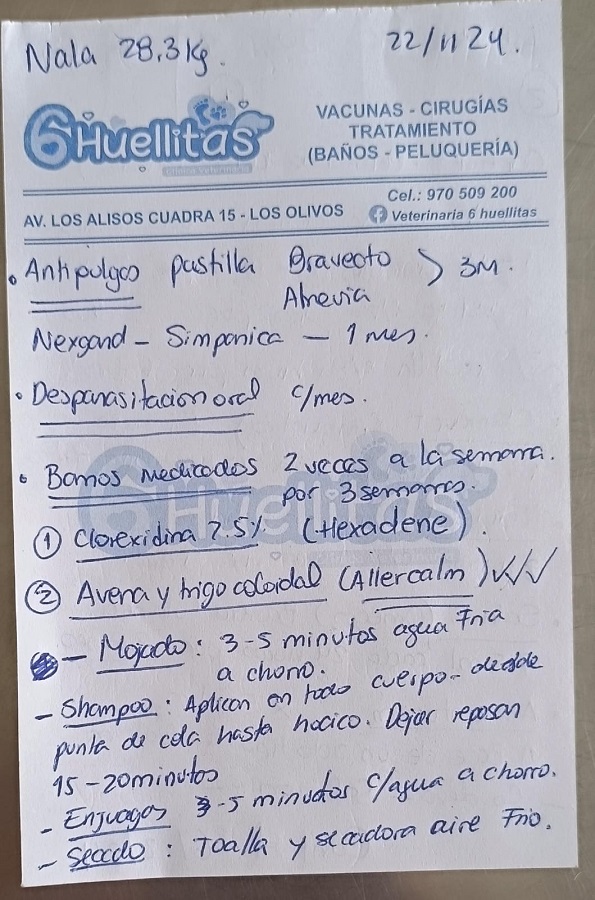 Nala 28,3 Kg.
22/11 24.
6 Huellitas
VACUNAS - CIRUGÍAS
TRATAMIENTO
(BAÑOS - PELUQUERÍA)
AV. LOS ALISOS CUADRA 15 - LOS OLIVOS
Cel.: 970 509 200
Veterinaria 6 huellitas
• Antipulgas pastilla Bravecto > 3M.
Atrevia
Nexgard - Simparica - 1 mes.
• Desparasitacion oral c/mes.
• Baños Medicados 2 veces a la semana.
por 3 semanas.
① Clorexidina 2.5% (Hexadene).
② Avena y trigo coloidal (Allercalm) ✓✓✓
- Mojado: 3-5 minutos agua Fria
a chorro.
- Shampoo: Aplicar en todo cuerpo - desde
punta de cola hasta hocico. Dejar reposar
15-20 minutos
- Enjuagar 3-5 minutos c/agua a chorro.
- Secado: Toalla y secadora aire Frio.